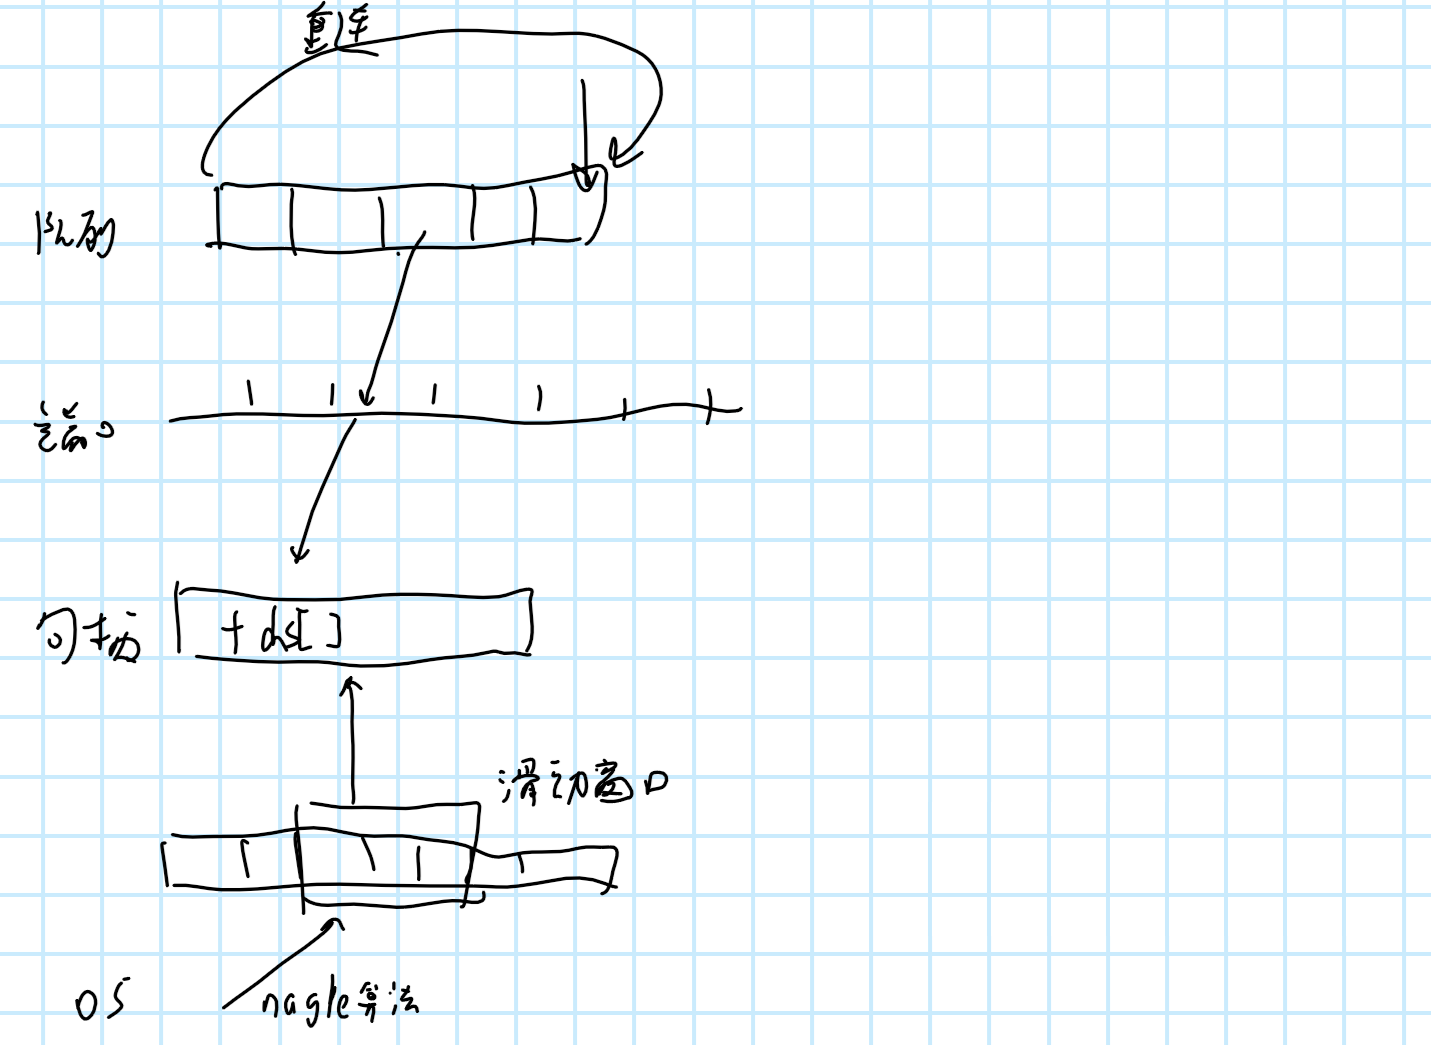 重连
队列
端口
句柄
fds[]
滑动窗口
OS
nagle算法